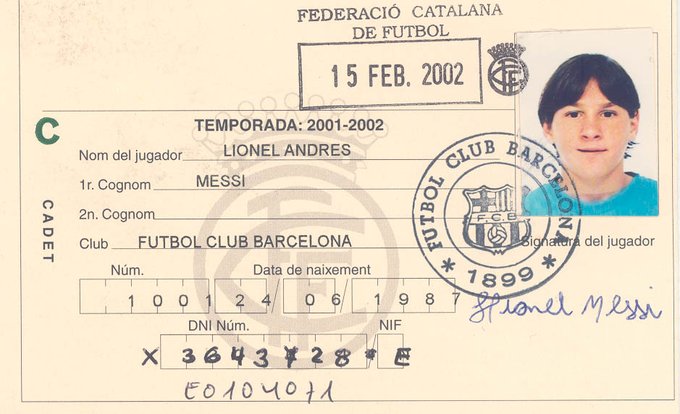 FEDERACIÓ CATALANA
DE FUTBOL
15 FEB. 2002
C
CADET
TEMPORADA: 2001-2002
Nom del jugador LIONEL ANDRES
1r. Cognom MESSI
2n. Cognom
Club FUTBOL CLUB BARCELONA
FUTBOL CLUB BARCELONA
F.C.B
* 1899 *
Signatura del jugador
Núm. Data de naixement
1001 24/06/1987
Lionel Messi
DNI Núm. NIF
X E
E0104071